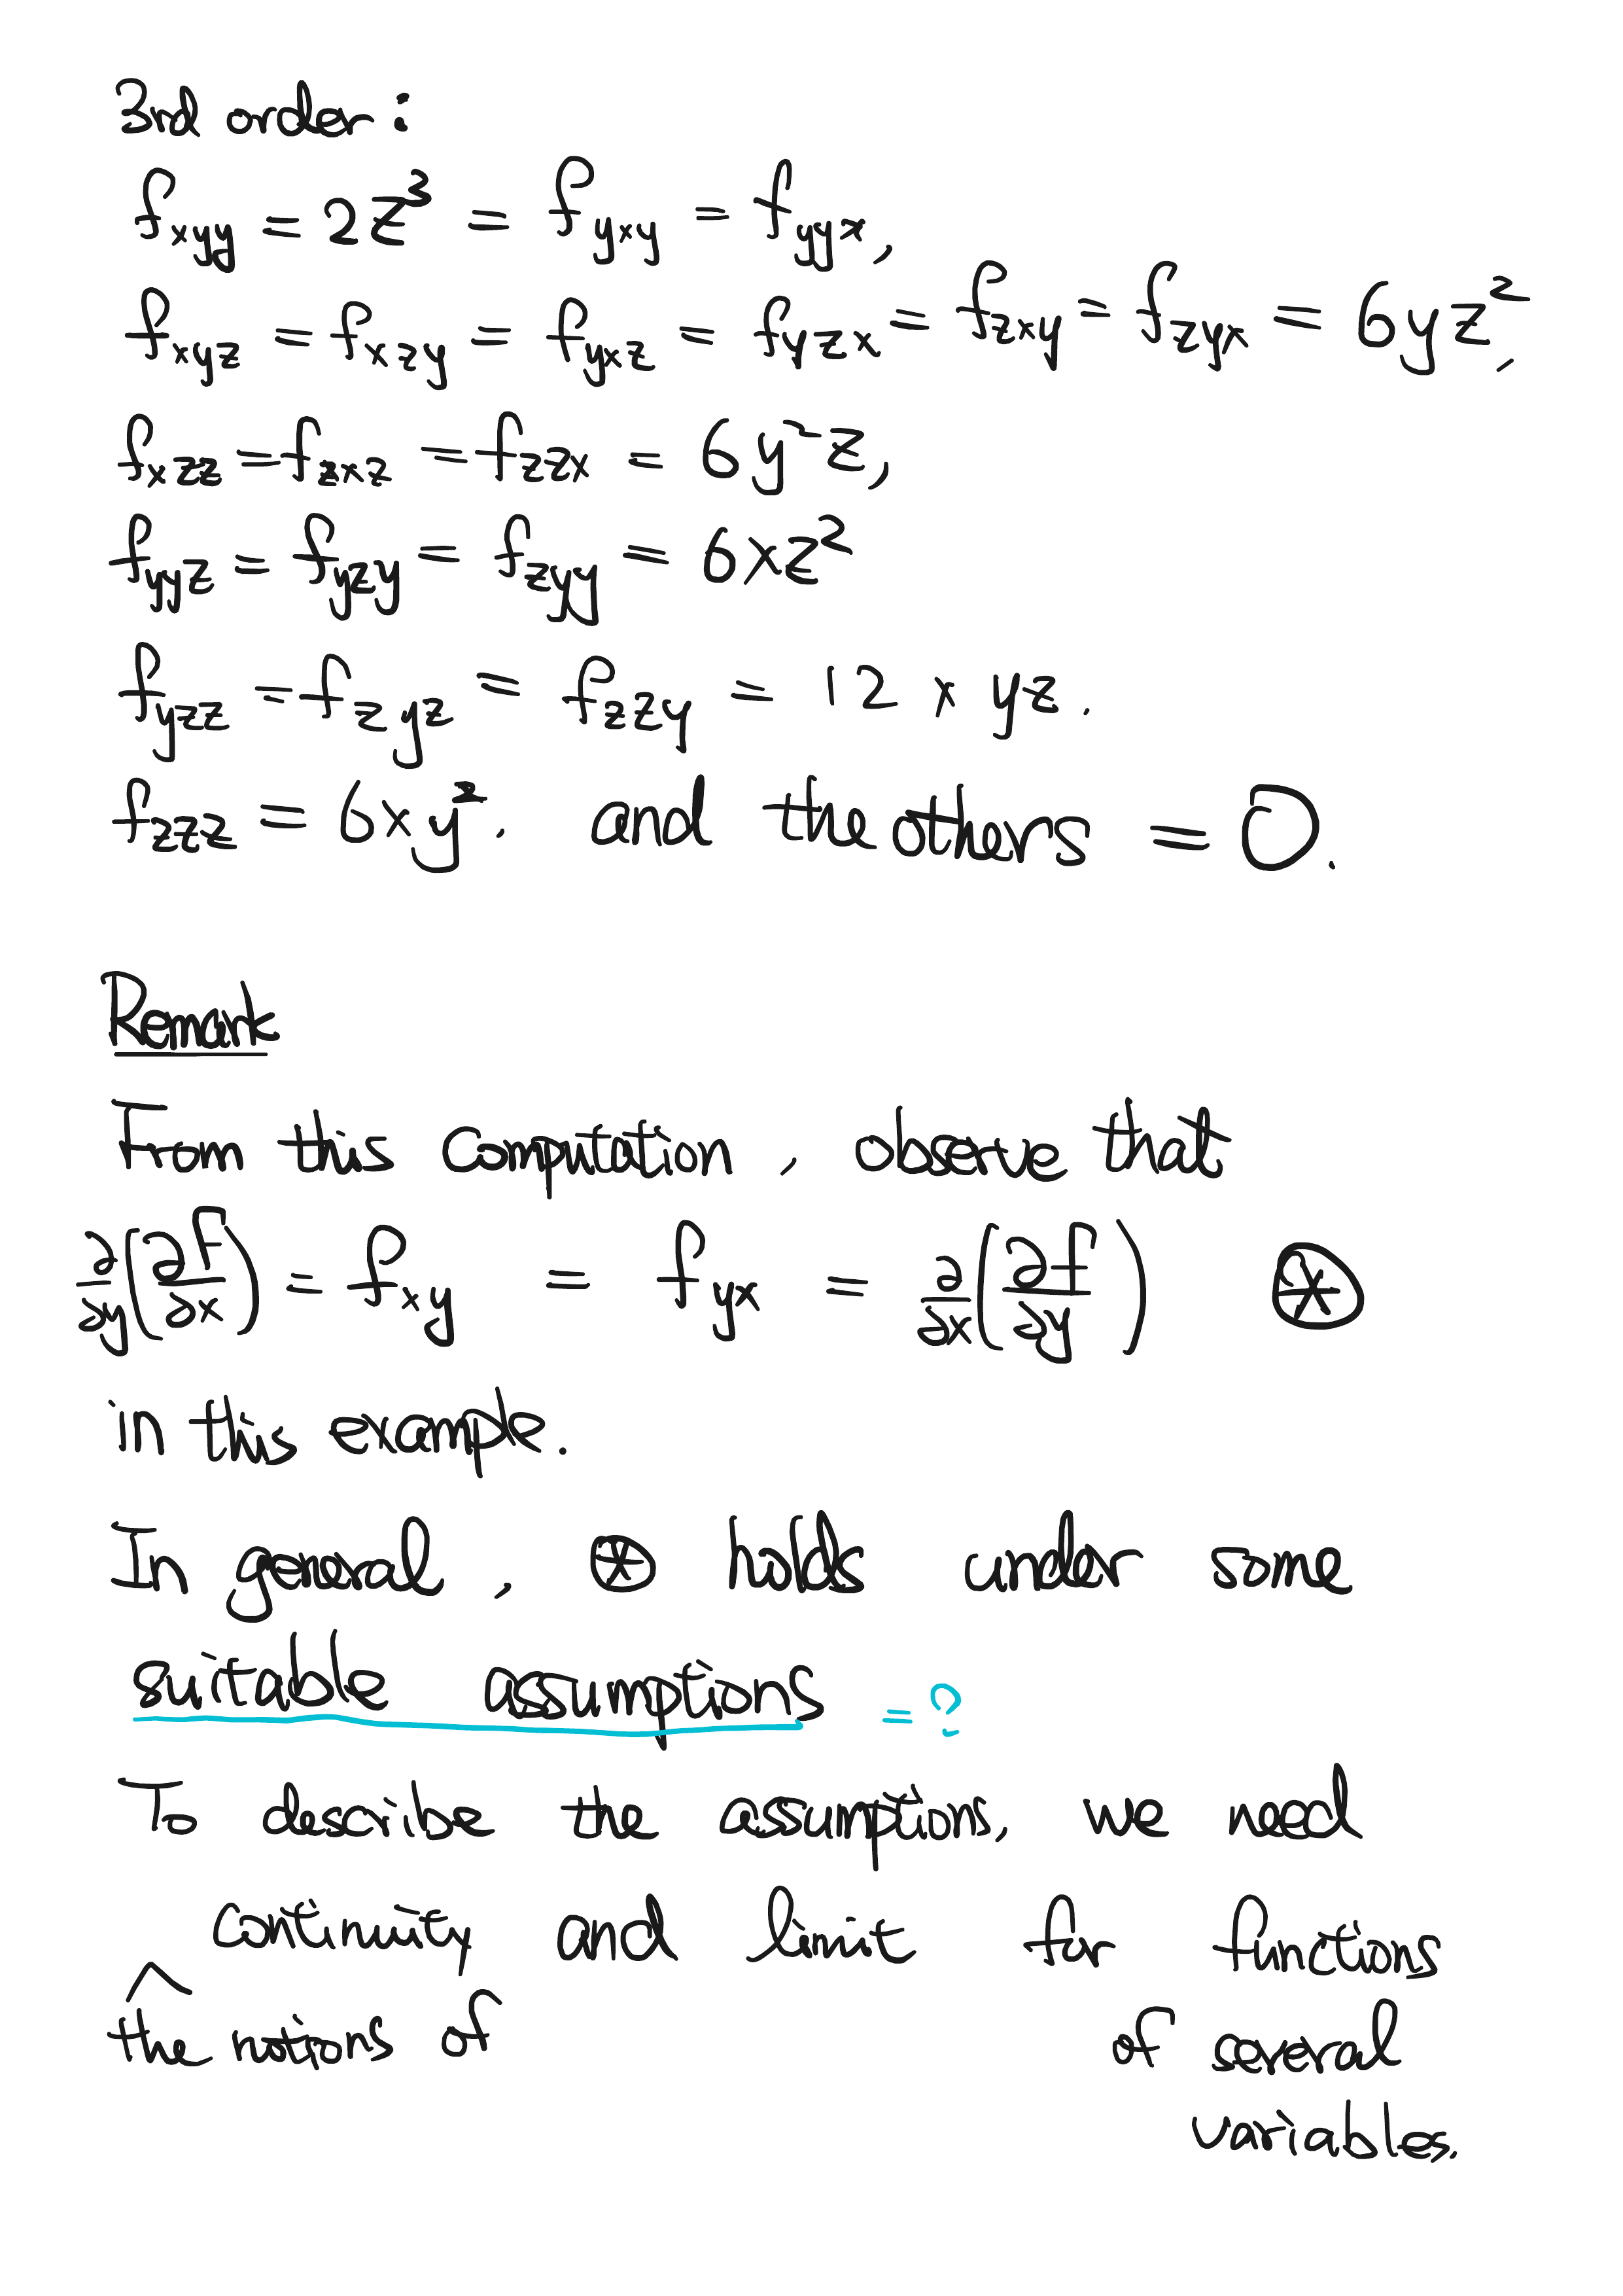 3rd order :
f_xyy = 2z³ = f_yxy = f_yyx,
f_xyz = f_xzy = f_yxz = f_yzx = f_zxy = f_zyx = 6yz²,
f_xzz = f_zxz = f_zzx = 6y²z,
f_yyz = f_yzy = f_zyy = 6xz²
f_yzz = f_zyz = f_zzy = 12xyz.
f_zzz = 6xy². and the others = 0.
Remark
From this computation, observe that
∂/∂y(∂f/∂x) = f_xy = f_yx = ∂/∂x(∂f/∂y) ⊛
in this example.
In general, ⊛ holds under some
suitable assumptions = ?
To describe the assumptions, we need
^ continuity and limit for functions
the notions of of several
variables.